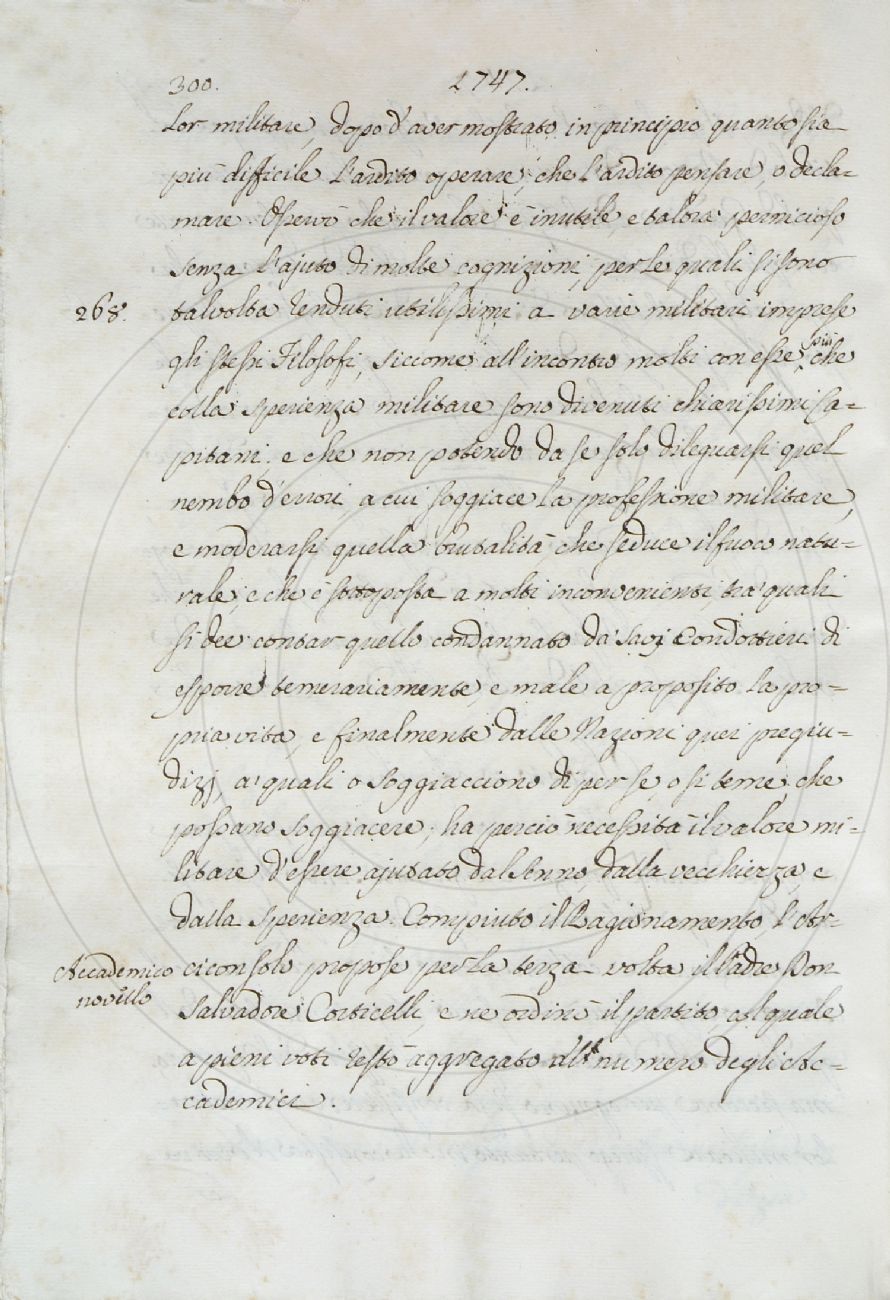 300.
1747.
lor militare, dopo d'aver mostrato in principio quanto sia
più difficile l'ardito operare, che l'ardito pensare, o decla-
mare. Osservò che il valore è inutile e talora pernicioso
senza l'ajuto di molte cognizioni, per le quali si sono
268.
talvolta renduti utilissimi a varie militari imprese
gli stessi Filosofi, siccome all'incontro molti con esse, più che
colla sperienza militare sono divenuti chiarissimi Ca-
pitani. e che non potendo da se solo dileguarsi quel
nembo d'errori a cui soggiace la professione militare,
e moderarsi quella brutalità che seduce il fuoco natu-
rale, e che è sottoposta a molti inconvenienti, tra' quali
si dee contar quello condannato da' Savj Condottieri di
esporre temerariamente, e male a proposito la pro-
pria vita, e finalmente dalle Nazioni quei pregiu-
dizj, a' quali o soggiacciono di per se, o si teme, che
possano soggiacere, ha perciò necessità il valore mi-
litare d'essere ajutato dal senno, dalla vecchiezza, e
dalla sperienza. Compiuto il Ragionamento, l'Ar-
Accademico
novello
ciconsolo propose per la terza volta il Padre Don
Salvadore Corticelli, e ne ordinò il partito, col quale
a pieni voti restò aggregato al numero degli Ac-
cademici.